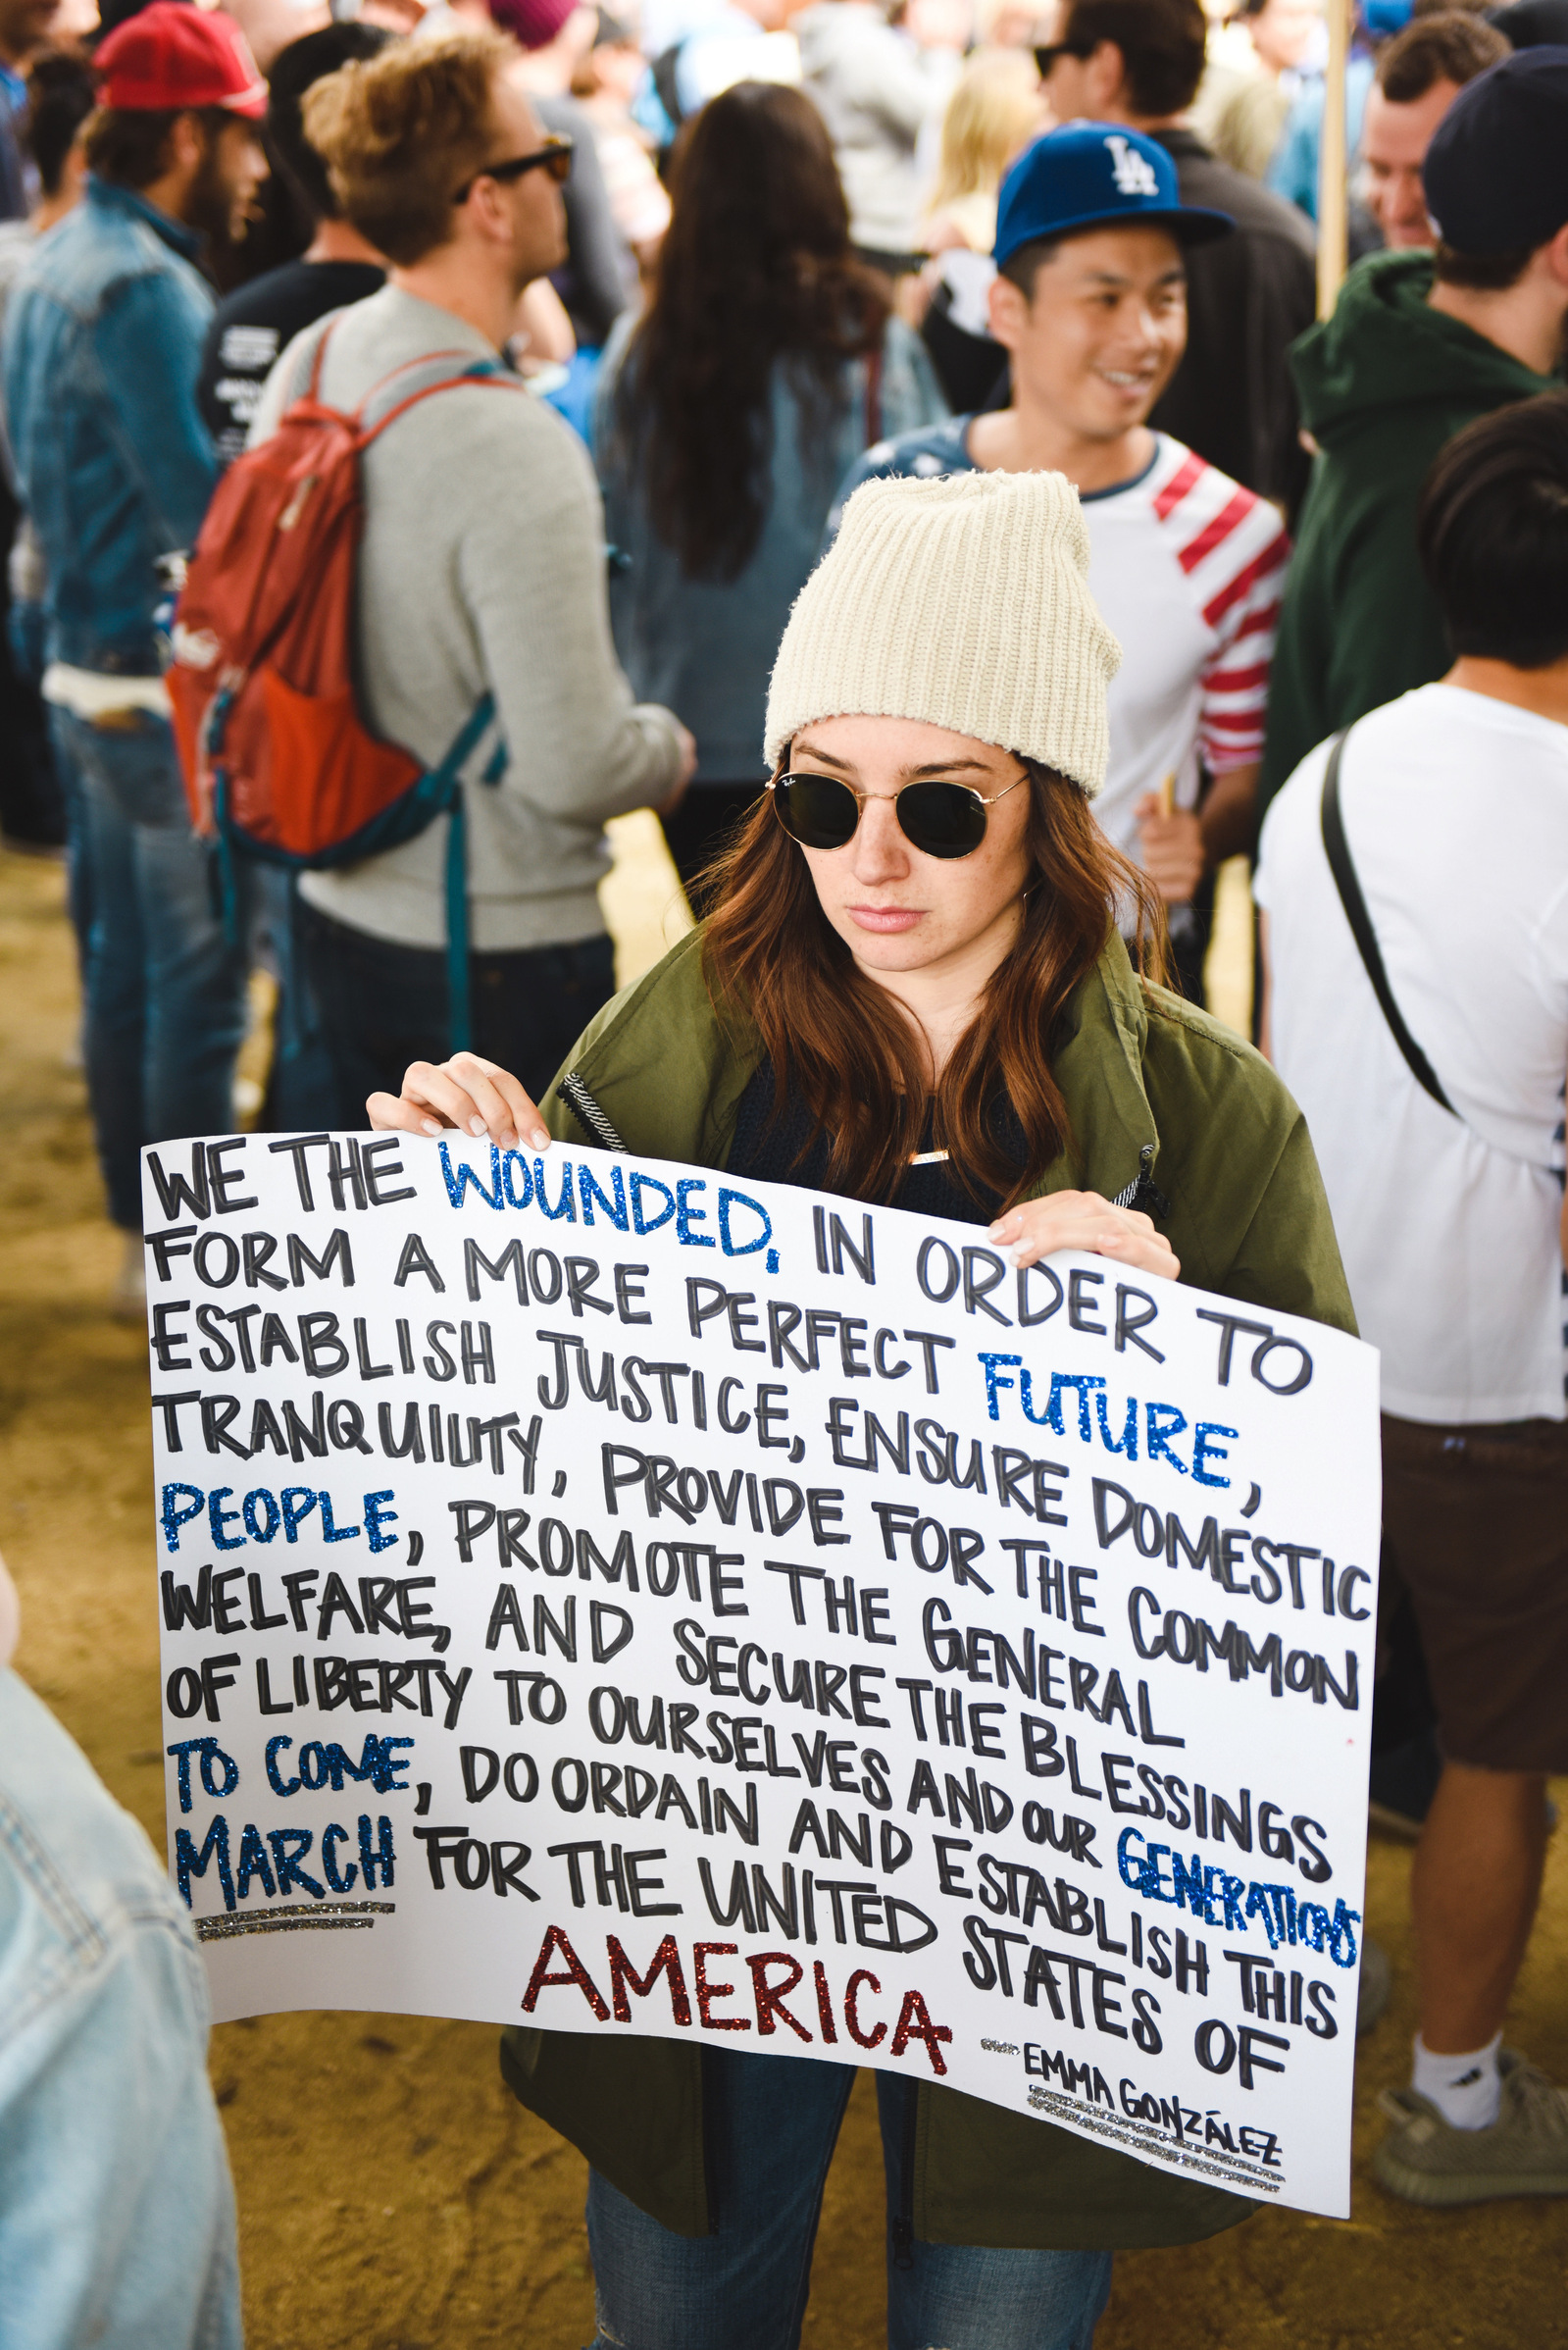 LA
Ray-Ban
WE THE WOUNDED, IN ORDER TO
FORM A MORE PERFECT FUTURE,
ESTABLISH JUSTICE, ENSURE DOMESTIC
TRANQUILITY, PROVIDE FOR THE COMMON
PEOPLE, PROMOTE THE GENERAL
WELFARE, AND SECURE THE BLESSINGS
OF LIBERTY TO OURSELVES AND OUR GENERATIONS
TO COME, DO ORDAIN AND ESTABLISH THIS
MARCH FOR THE UNITED STATES OF
AMERICA
— EMMA GONZÁLEZ